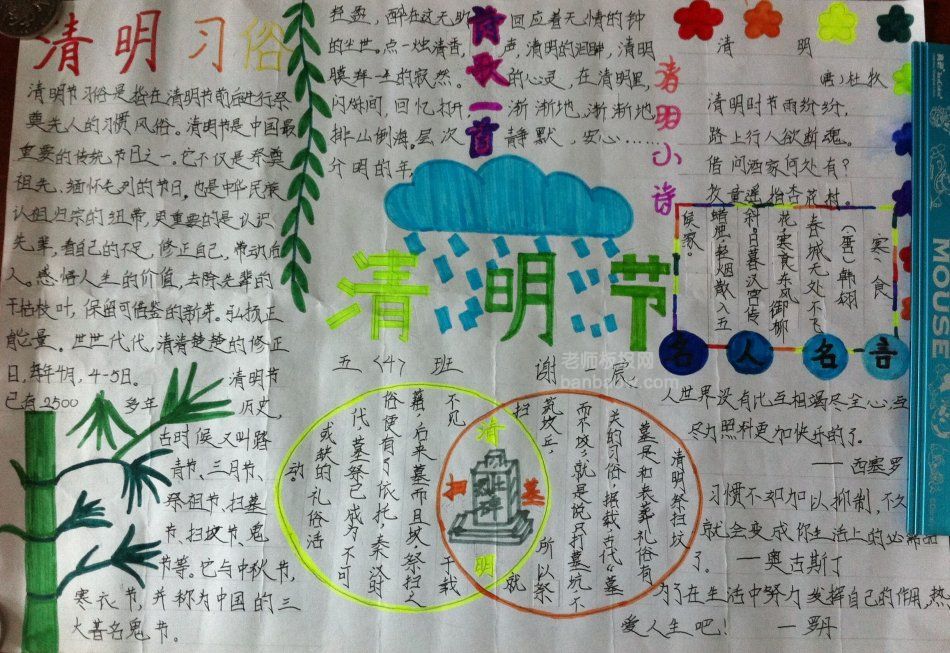 清明习俗
清明节习俗是指在清明节前后进行祭
奠先人的习惯风俗。清明节是中国最
重要的传统节日之一。它不仅是祭奠
祖先、缅怀先烈的节日,也是中华民族
认祖归宗的纽带,更重要的是认识
先辈,看自己的不足,修正自己,带动后
人。感悟人生的价值,去除先辈的
干枯枝叶,保留可借鉴的新芽。弘扬正
能量。世世代代,清清楚楚的修正
日,每年4月,4-5日。 清明节
已有2500 多年 历史,
古时候又叫踏
青节、三月节、
祭祖节、扫墓
节、扫坟节、鬼
节等。它与中秋节,
寒衣节,并称为中国的三
大著名鬼节。
诗歌一首
轻愁,醉在这天助
的尘世。点一烛清香,
膜拜 的寂然。
闪烁间,回忆打开,
排山倒海。层次
分明的年,
回应着天情的钟
声,清明的泪眸,清明
的心灵,在清明里,
渐渐地,渐渐地,
静默,安心……
清明小诗
清 明
(唐)杜牧
清明时节雨纷纷,
路上行人欲断魂。
借问酒家何处有?
牧童遥指杏花村。
寒食
(唐)韩翃
春城无处不飞
花,寒食东风御柳
斜。日暮汉宫传
蜡烛,轻烟散入五
侯家。
清明节
五〈4〉班 谢 宸
老师板报网
banbaow.com
清明祭扫坟
墓尽和丧葬礼俗有
关的习俗,据载,古代“墓
而不坟”,就是说只打墓坑,不
筑坟丘, 所以祭
扫 就
不见 于载
籍。后来墓而且坟,祭扫之
俗便有了依托,秦汉时
代,墓祭已成为不可
或缺的礼俗活
动。
清
扫墓
明
烈士碑
名人名言
人世界没有比互相竭尽全心,互
尽力照料更加快乐的了。
——西塞罗
习惯不如加以抑制,不久
就会变成你生活上的必需品
了。 ——奥古斯丁
为了在生活中努力发挥自己的作用,热
爱人生吧! —罗丹
MOUSE